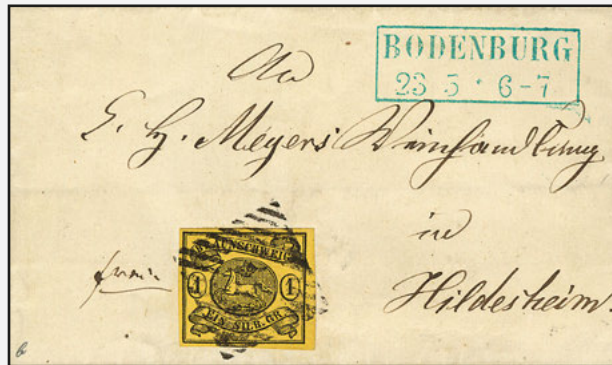 BODENBURG
23 5 · 6-7
An
E. H. Meyers Weinhandlung
in
Hildesheim.
franco
BRAUNSCHWEIG
1 1
EIN SILB. GR.